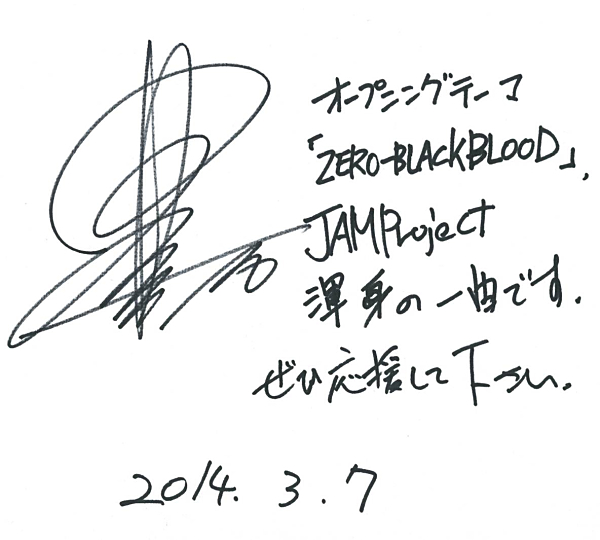 オープニングテーマ
「ZERO-BLACKBLOOD」,
JAMProject
渾身の一曲です.
ぜひ応援して下さい.
2014. 3. 7